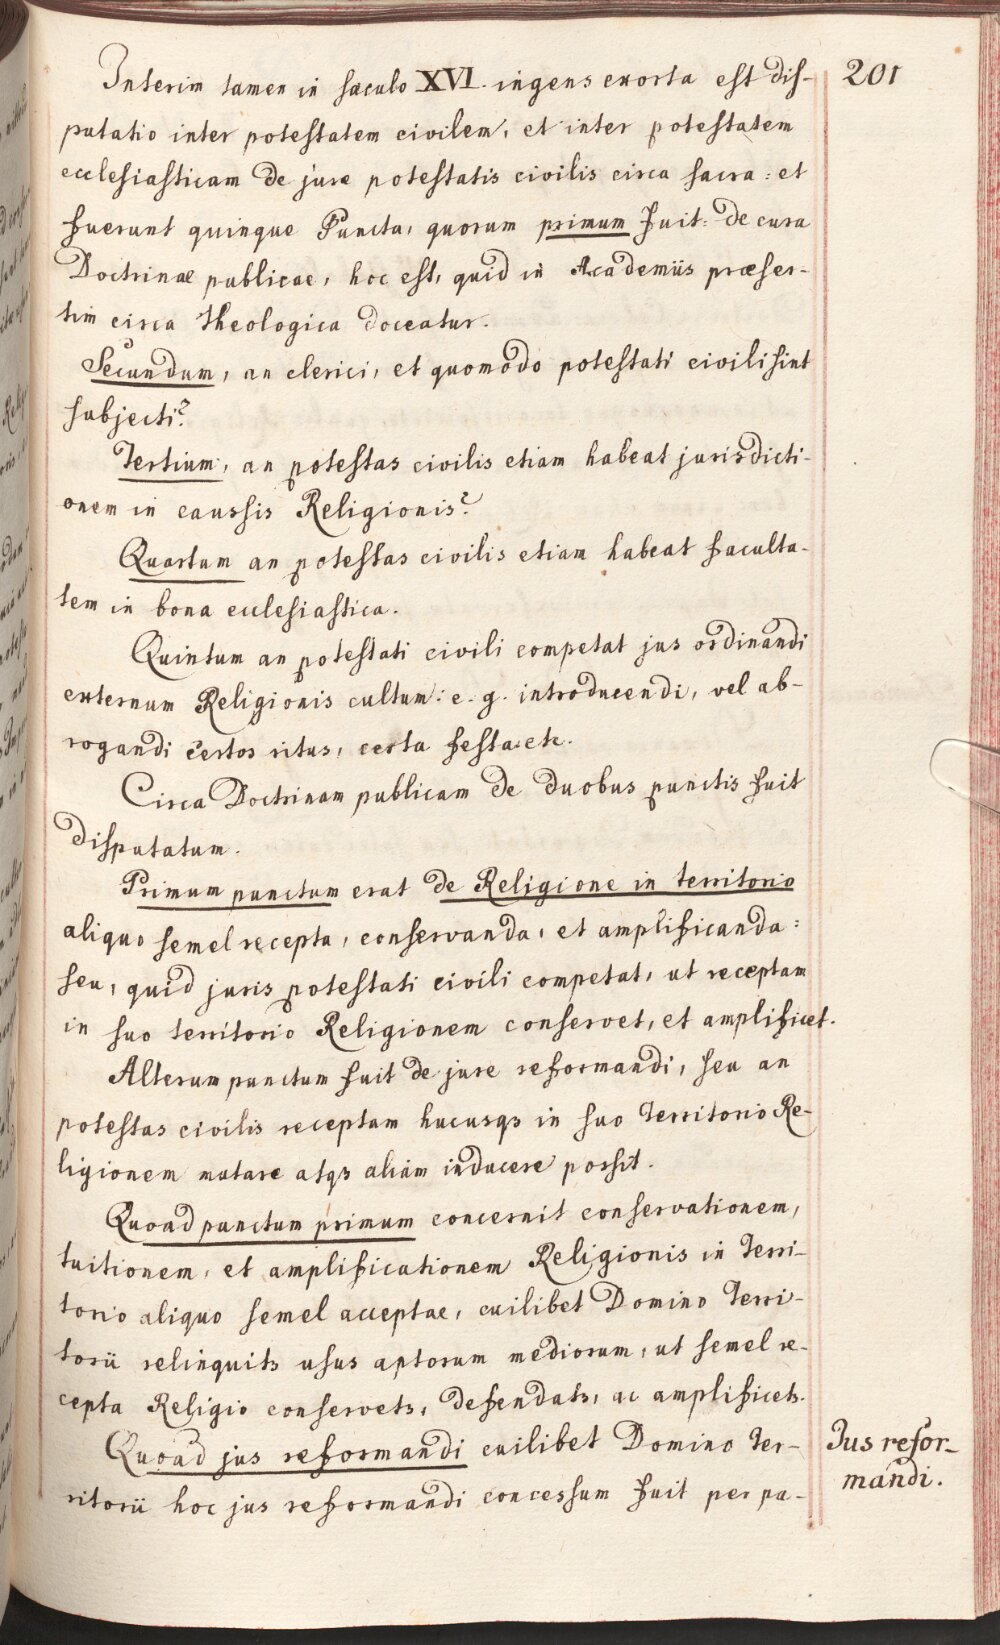 201
Interim tamen in sæculo XVI. ingens exorta est dis-
putatio inter potestatem civilem, et inter potestatem
ecclesiasticam de jure potestatis civilis circa sacra: et
fuerunt quinque Puncta, quorum primum fuit: de cura
Doctrinae publicae, hoc est, quid in Academiis præser-
tim circa theologica doceatur.
Secundum, an clerici, et quomodo potestati civili sint
subjecti?
Tertium, an potestas civilis etiam habeat jurisdicti-
onem in caussis Religionis?
Quartum an potestas civilis etiam habeat faculta-
tem in bona ecclesiastica.
Quintum an potestati civili competat jus ordinandi
externum Religionis cultum: e. g. introducendi, vel ab-
rogandi certos ritus, certa festa etc.
Circa Doctrinam publicam de duobus punctis fuit
disputatum.
Primum punctum erat de Religione in territorio
aliquo semel recepta, conservanda, et amplificanda:
seu, quid juris potestati civili competat, ut receptam
in suo territorio Religionem conservet, et amplificet.
Alterum punctum fuit de jure reformandi, seu an
potestas civilis receptam hucusqs in suo Territorio Re-
ligionem mutare atqs aliam inducere possit.
Quoad punctum primum concernit conservationem,
tuitionem, et amplificationem Religionis in Terri-
torio aliquo semel acceptae, cuilibet Domino Terri-
torii relinquits usus aptorum mediorum, ut semel re-
cepta Religio conservets, defendats, ac amplificets.
Quoad jus reformandi cuilibet Domino Ter-
ritorii hoc jus reformandi concessum fuit per pa-
Jus refor-
mandi.